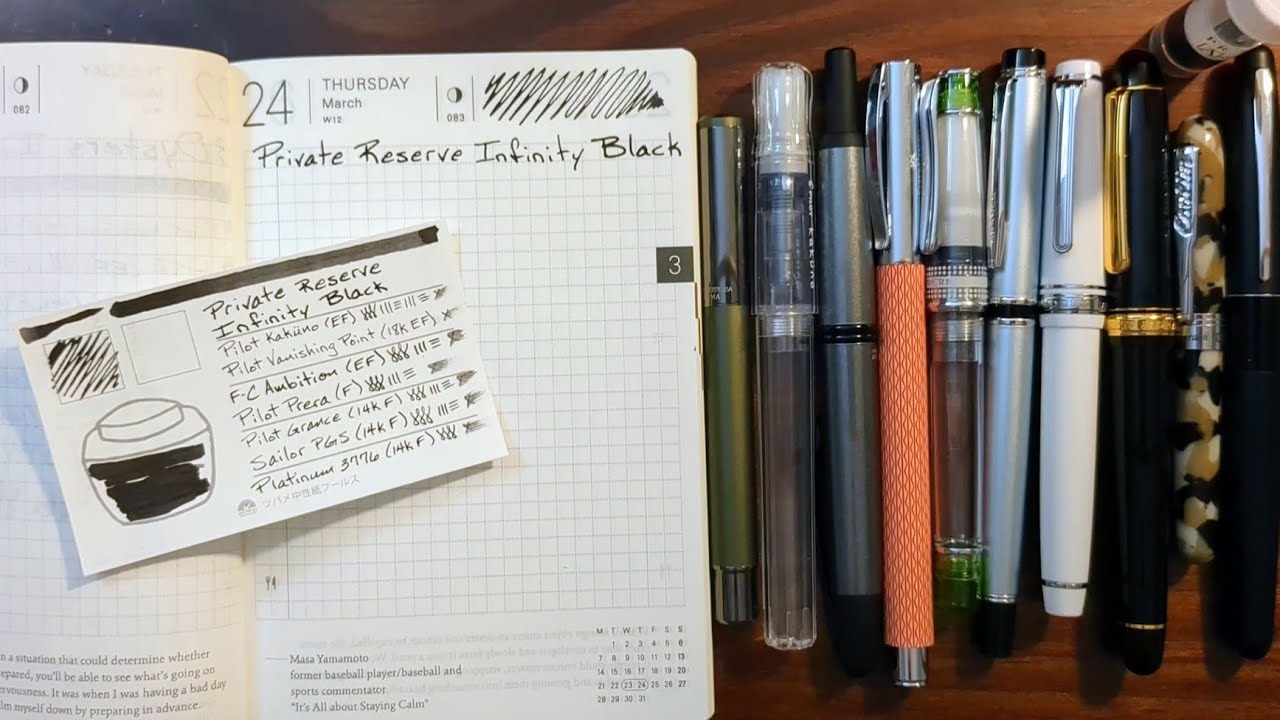 082
24
THURSDAY
March
W12
083
Private Reserve Infinity Black
3
Private Reserve
Infinity Black
Pilot Kaküno (EF)
Pilot Vanishing Point (18k EF)
F-C Ambition (EF)
Pilot Prera (F)
Pilot Grance (14k F)
Sailor PGS (14k F)
Platinum 3776 (14k F)
ツバメ中性紙フールス
n a situation that could determine whether
epared, you'll be able to see what's going on
ervousness. It was when I was having a bad day
lm myself down by preparing in advance.
Masa Yamamoto
former baseball player/baseball and
sports commentator
"It's All about Staying Calm"
M T W T F S S
1 2 3 4 5 6
7 8 9 10 11 12 13
14 15 16 17 18 19 20
21 22 23 24 25 26 27
28 29 30 31
Pilot kaküno